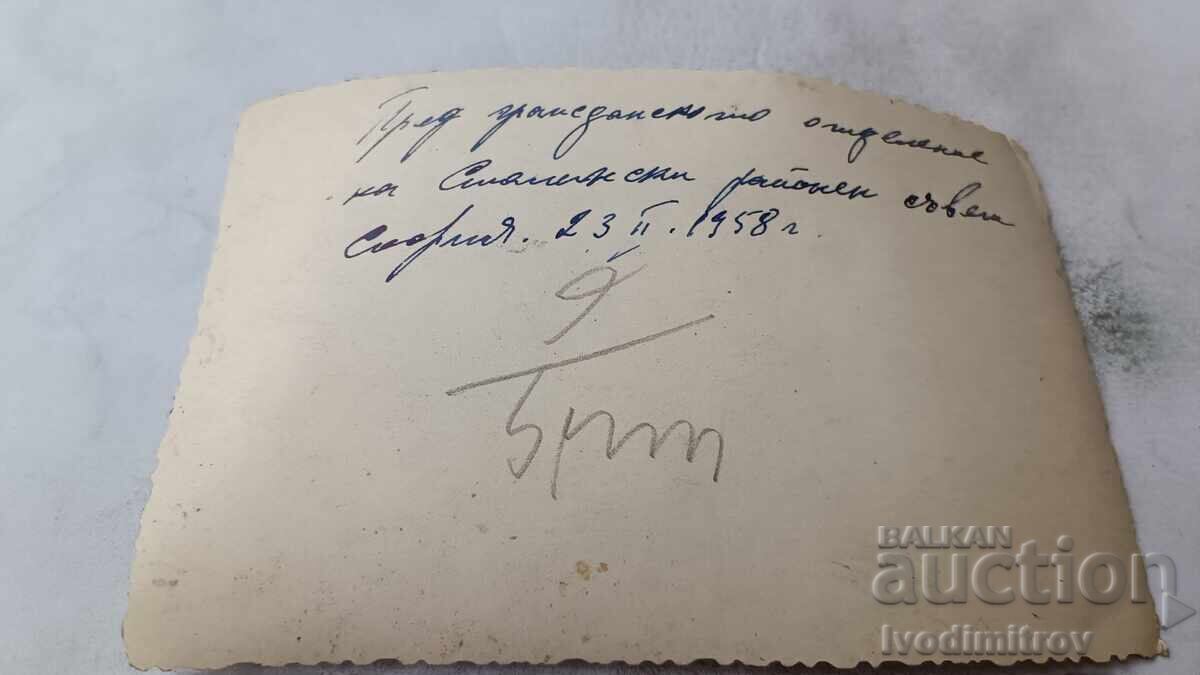 Пред гражданското отделение
на Сталински районен съвет
София. 23 II. 1958 г.
9
BALKAN
auction
Ivodimitrov